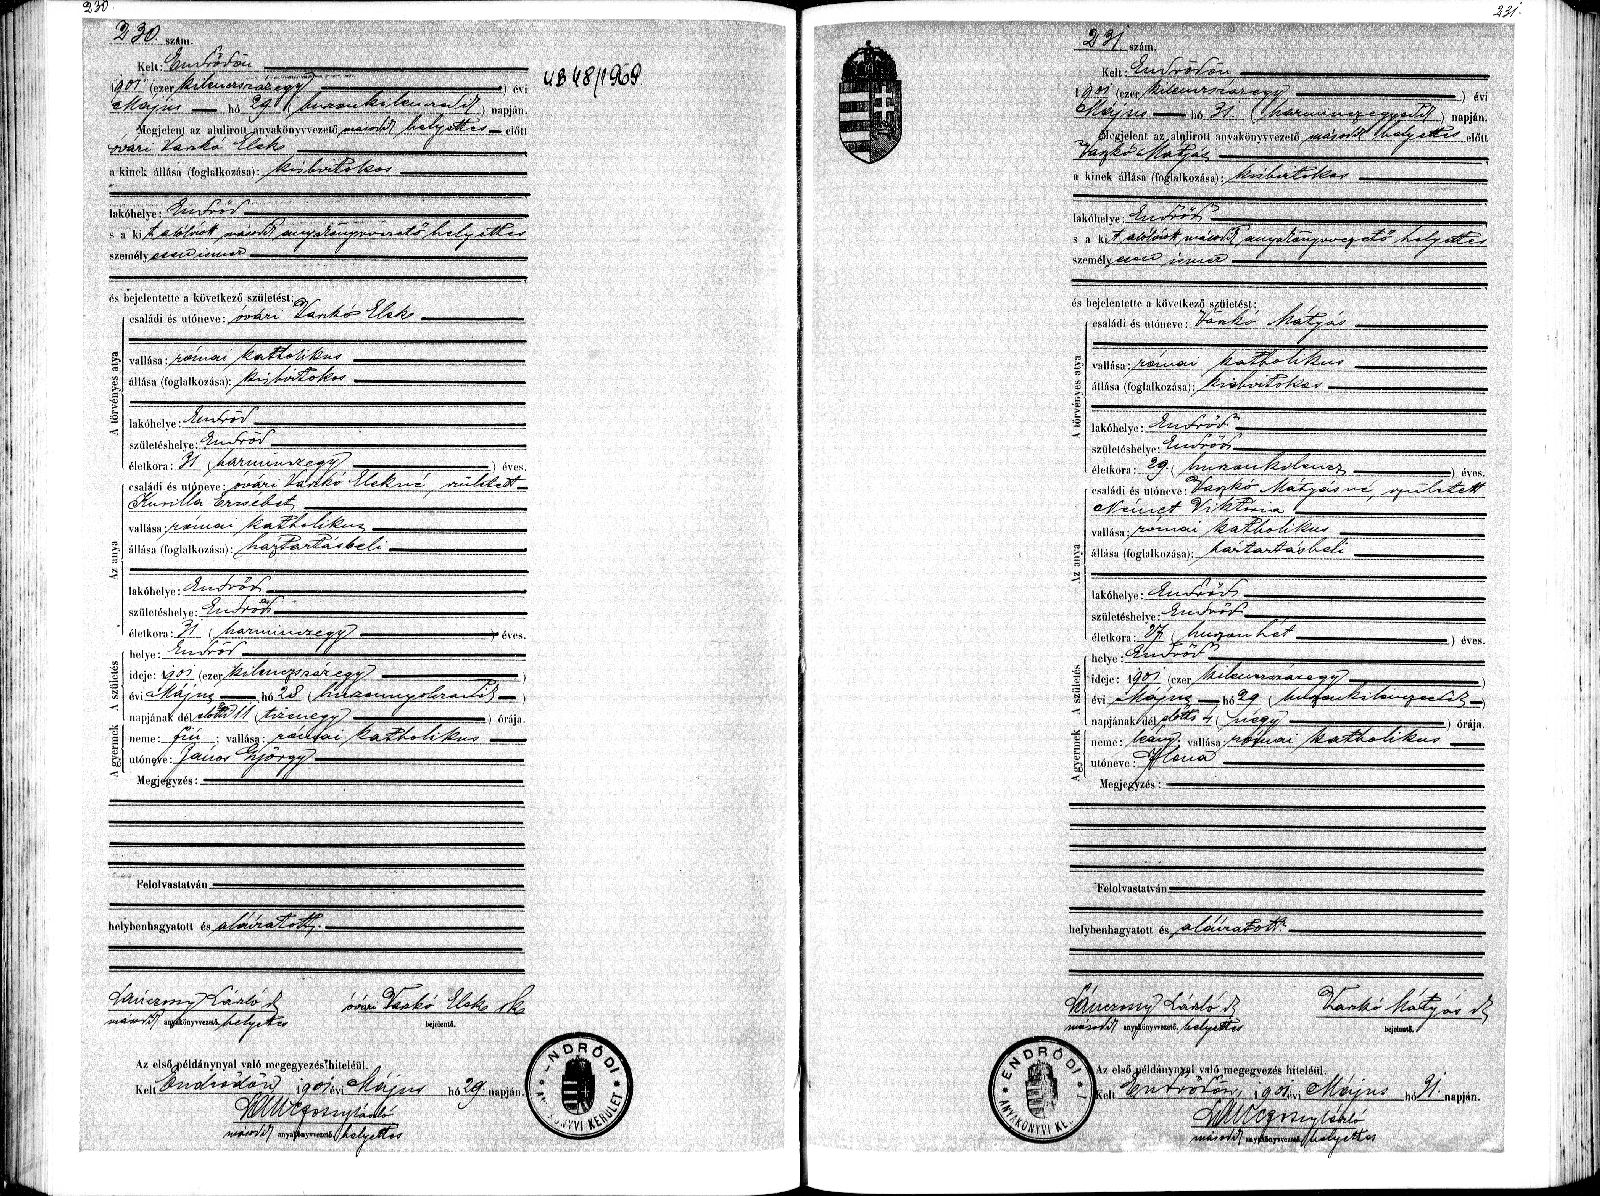 230.
230. szám.
Kelt: Endrődön
1901 (ezer kilenczszázegy) évi
Május hó 29 (huszonkilenczedik) napján.
Megjelent az alulirott anyakönyvvezető másodk helyettes előtt
óvári Vaskó Elek
a kinek állása (foglalkozása): kisbirtokos
lakóhelye: Endrőd
s a kit alólirott másodk anyakönyvvezető helyettes
személyesen ismer
és bejelentette a következő születést:
A törvényes atya
családi és utóneve: óvári Vaskó Elek
vallása: római katholikus
állása (foglalkozása): kisbirtokos
lakóhelye: Endrőd
születéshelye: Endrőd
életkora: 31 (harminczegy) éves.
Az anya
családi és utóneve: óvári Vaskó Elekné, született
Kurilla Erzsébet
vallása: római katholikus
állása (foglalkozása): háztartásbeli
lakóhelye: Endrőd
születéshelye: Endrőd
életkora: 31 (harminczegy) éves.
A születés
helye: Endrőd
ideje: 1901 (ezer kilenczszázegy)
évi Május hó 28 (huszonnyolczadik)
napjának dél előtti 11 (tizenegy) órája.
A gyermek
neme: fiú; vallása: római katholikus
utóneve: János György
Megjegyzés:
Felolvastatván
helybenhagyatott és aláiratott.
Lánczosny László sk
másodk anyakönyvvezető. helyettes
óvári Vaskó Elek sk
bejelentő.
Az első példánynyal való megegyezés hiteléül.
Kelt Endrődön 1901 évi Május hó 29 napján.
másodk anyakönyvvezető. helyettes
ENDRŐDI ANYAKÖNYVI KERÜLET
UB 48/1969
231.
231. szám.
Kelt: Endrődön
1901 (ezer kilenczszázegy) évi
Május hó 31. (harminczegyedik) napján.
Megjelent az alulirott anyakönyvvezető másodk helyettes előtt
Vaskó Mátyás
a kinek állása (foglalkozása): kisbirtokos
lakóhelye: Endrőd
s a kit alólirott másodk anyakönyvvezető helyettes
személyesen ismer
és bejelentette a következő születést:
A törvényes atya
családi és utóneve: Vaskó Mátyás
vallása: római katholikus
állása (foglalkozása): kisbirtokos
lakóhelye: Endrőd
születéshelye: Endrőd
életkora: 29 (huszonkilencz) éves.
Az anya
családi és utóneve: Vaskó Mátyásné, született
Német Viktoria
vallása: római katholikus
állása (foglalkozása): háztartásbeli
lakóhelye: Endrőd
születéshelye: Endrőd
életkora: 27 (huszonhét) éves.
A születés
helye: Endrőd
ideje: 1901 (ezer kilenczszázegy)
évi Május hó 29 (huszonkilenczedik)
napjának dél előtti 4 (négy) órája.
A gyermek
neme: leány; vallása: római katholikus
utóneve: Ilona
Megjegyzés:
Felolvastatván
helybenhagyatott és aláiratott.
László sk
másodk anyakönyvvezető. helyettes
Vaskó Mátyás sk
bejelentő.
Az első példánynyal való megegyezés hiteléül.
Kelt Endrődön 1901 évi Május hó 31. napján.
másodk anyakönyvvezető. helyettes
ENDRŐDI ANYAKÖNYVI KE